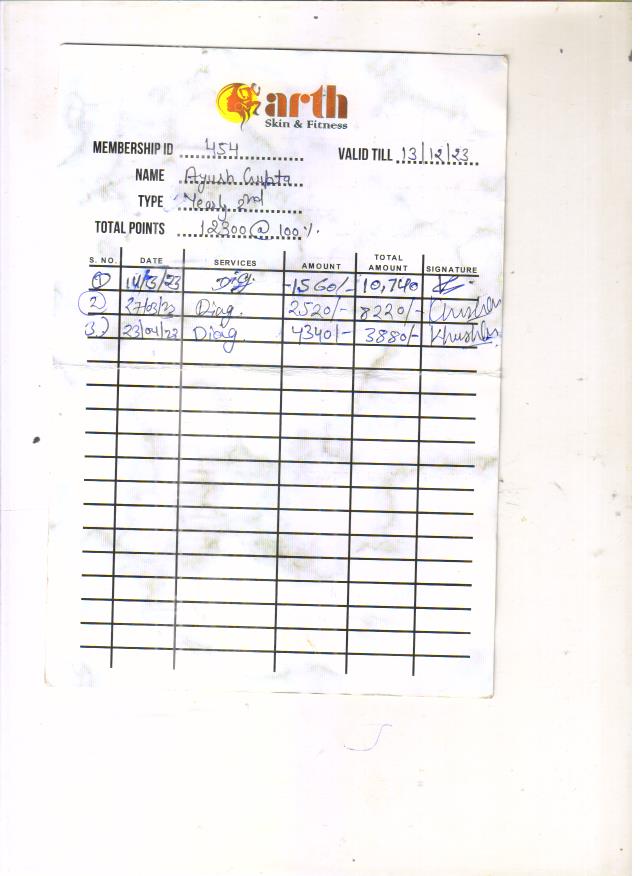 arth
Skin & Fitness
MEMBERSHIP ID 454 VALID TILL 13/12/23
NAME Ayush Gupta
TYPE Yearly 2nd
TOTAL POINTS 12300 @ 100%
S. NO. DATE SERVICES AMOUNT TOTAL AMOUNT SIGNATURE
1 14/3/23 Diag. -1560/- 10,740
2 27/03/23 Diag. 2520/- 8220/-
3.) 23/04/23 Diag. 4340/- 3880/- Khushbu